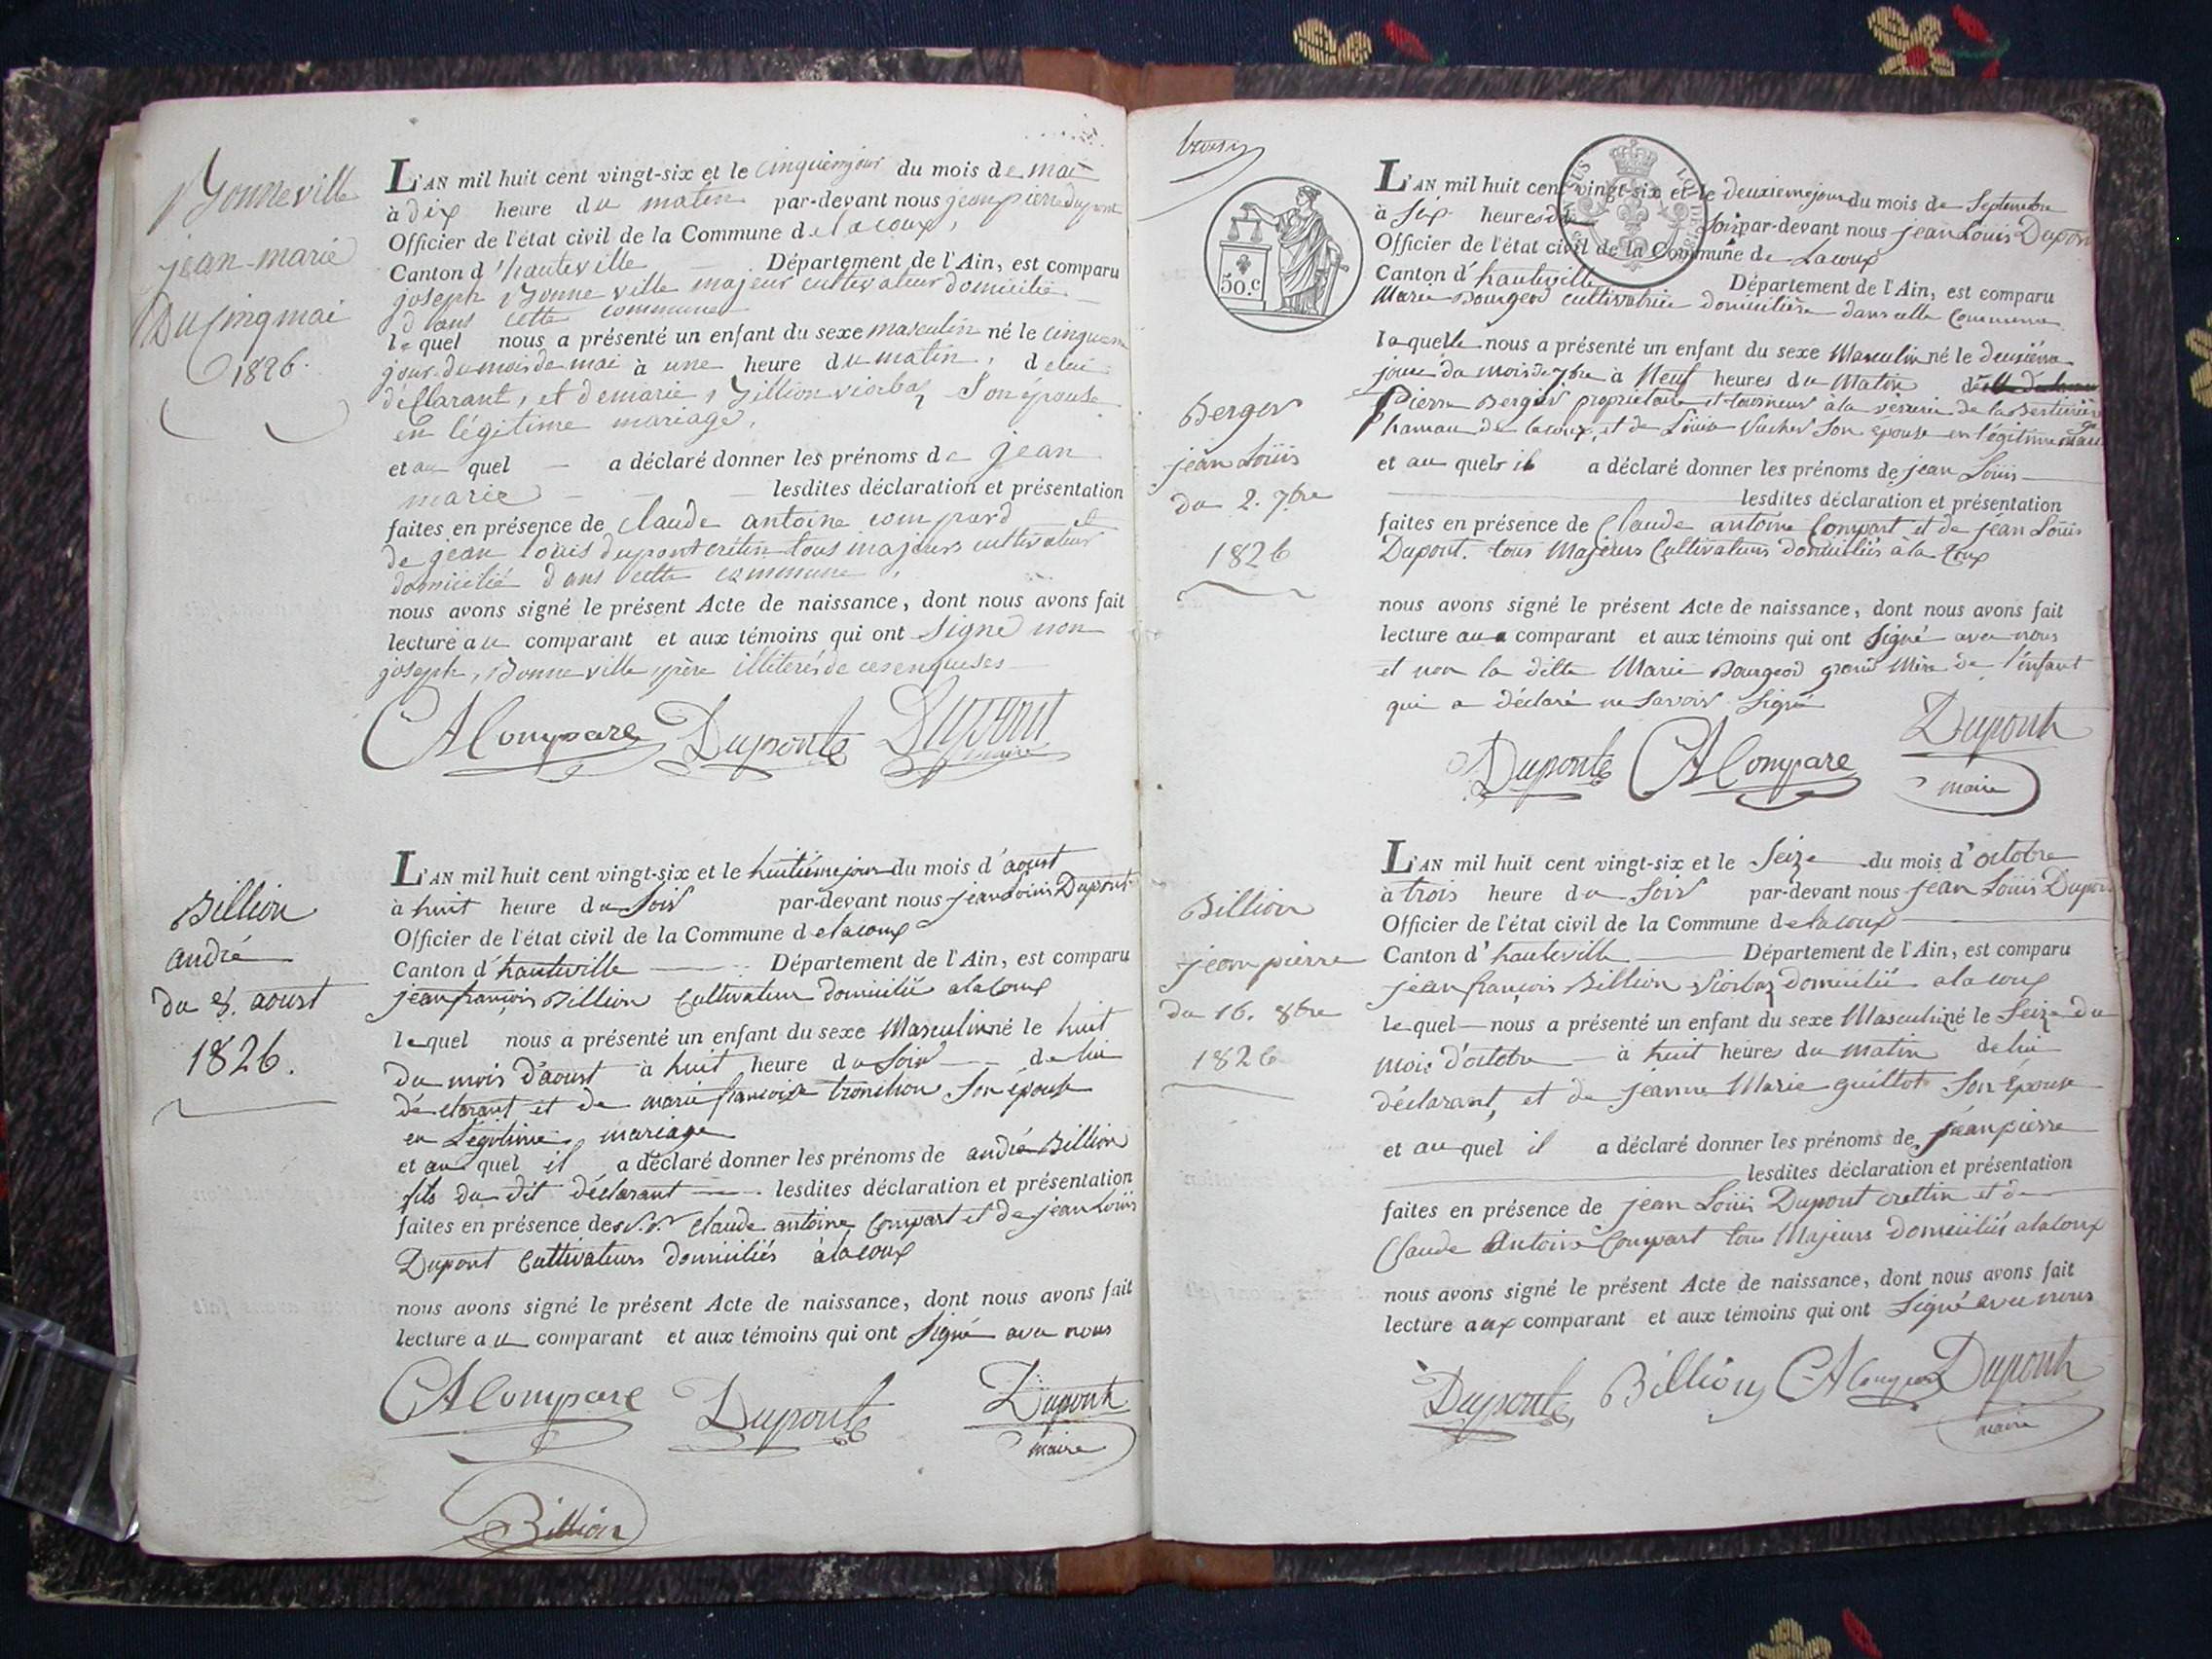 Bonneville
jean-marie
Du cinq mai
1826.
L'AN mil huit cent vingt-six et le cinquieme jour du mois de mai
à dix heure du matin par-devant nous jean pierre dupont
Officier de l'état civil de la Commune de lacoux,
Canton d'hauteville Département de l'Ain, est comparu
joseph Bonneville majeur cultivateur domicilié
dans cette commune
lequel nous a présenté un enfant du sexe masculin né le cinquieme
jour du mois de mai à une heure du matin, de lui
declarant, et de marie, Billion viorbaz son épouse
en légitime mariage,
et au quel a déclaré donner les prénoms de jean
marie lesdites déclaration et présentation
faites en présence de claude antoine compard et
de jean louis dupont crétin tous majeurs cultivateur
domicilié dans cette commune,
nous avons signé le présent Acte de naissance, dont nous avons fait
lecture au comparant et aux témoins qui ont signé non
joseph, Bonneville père illiteré de ces enquises
CA Compare Dupont Dupont
maire
Billion
andré
du 8. aoust
1826.
L'AN mil huit cent vingt-six et le huitième jour du mois d'aoust
à huit heure du soir par-devant nous jean Louis Dupont
Officier de l'état civil de la Commune de lacoux
Canton d'hauteville Département de l'Ain, est comparu
jean françois Billion Cultivateur domicilié a lacoux
lequel nous a présenté un enfant du sexe Masculin né le huit
du mois d'aoust à huit heure du soir de lui
déclarant et de marie françoise tronchon son épouse
en Légitime mariage
et au quel il a déclaré donner les prénoms de andré Billion
fils du dit déclarant lesdites déclaration et présentation
faites en présence des Srs claude antoine Compart et de jean Louis
Dupont Cultivateurs domiciliés à lacoux
nous avons signé le présent Acte de naissance, dont nous avons fait
lecture au comparant et aux témoins qui ont signé avec nous
CA Compare Dupont Dupont
maire
Billion
50.c
Berger
jean Louis
du 2. 7bre
1826
L'AN mil huit cent vingt-six et le deuxieme jour du mois de Septembre
à six heures du soir par-devant nous jean Louis Dupont
Officier de l'état civil de la Commune de Lacoux
Canton d'hauteville Département de l'Ain, est comparu
Marie Bourgeod cultivatrice domicilière dans cette Commune
laquelle nous a présenté un enfant du sexe Masculin né le deuxième
jour du mois de 7bre à Neuf heures du Matin de
Pierre Berger proprietaire et tourneur à la verrerie de la
hameau de lacoux, et de Louise Vucher son epouse en légitime mariage
et au quel il a déclaré donner les prénoms de jean Louis
lesdites déclaration et présentation
faites en présence de Claude antoine Compart et de jean Louis
Dupont. tous Majeurs Cultivateurs domiciliés à la Coux
nous avons signé le présent Acte de naissance, dont nous avons fait
lecture au comparant et aux témoins qui ont signé avec nous
et non la ditte Marie Bourgeod grand Mère de l'enfant
qui a déclaré ne savoir signé
Dupont CA Compare Dupont
maire
Billion
jean pierre
du 16. 8bre
1826
L'AN mil huit cent vingt-six et le Seize du mois d'octobre
à trois heure du soir par-devant nous jean Louis Dupont
Officier de l'état civil de la Commune de lacoux
Canton d'hauteville Département de l'Ain, est comparu
jean françois Billion Viorbaz domicilié a lacoux
lequel nous a présenté un enfant du sexe Masculin né le Seize du
mois d'octobre à huit heures du matin de lui
déclarant, et de jeanne Marie guillot son Épouse
et au quel il a déclaré donner les prénoms de jean pierre
lesdites déclaration et présentation
faites en présence de jean Louis Dupont crettin et de
Claude Antoine Compart tous Majeurs domiciliés a lacoux
nous avons signé le présent Acte de naissance, dont nous avons fait
lecture aux comparant et aux témoins qui ont signé avec nous
Dupont Billion CA Compare Dupont
maire